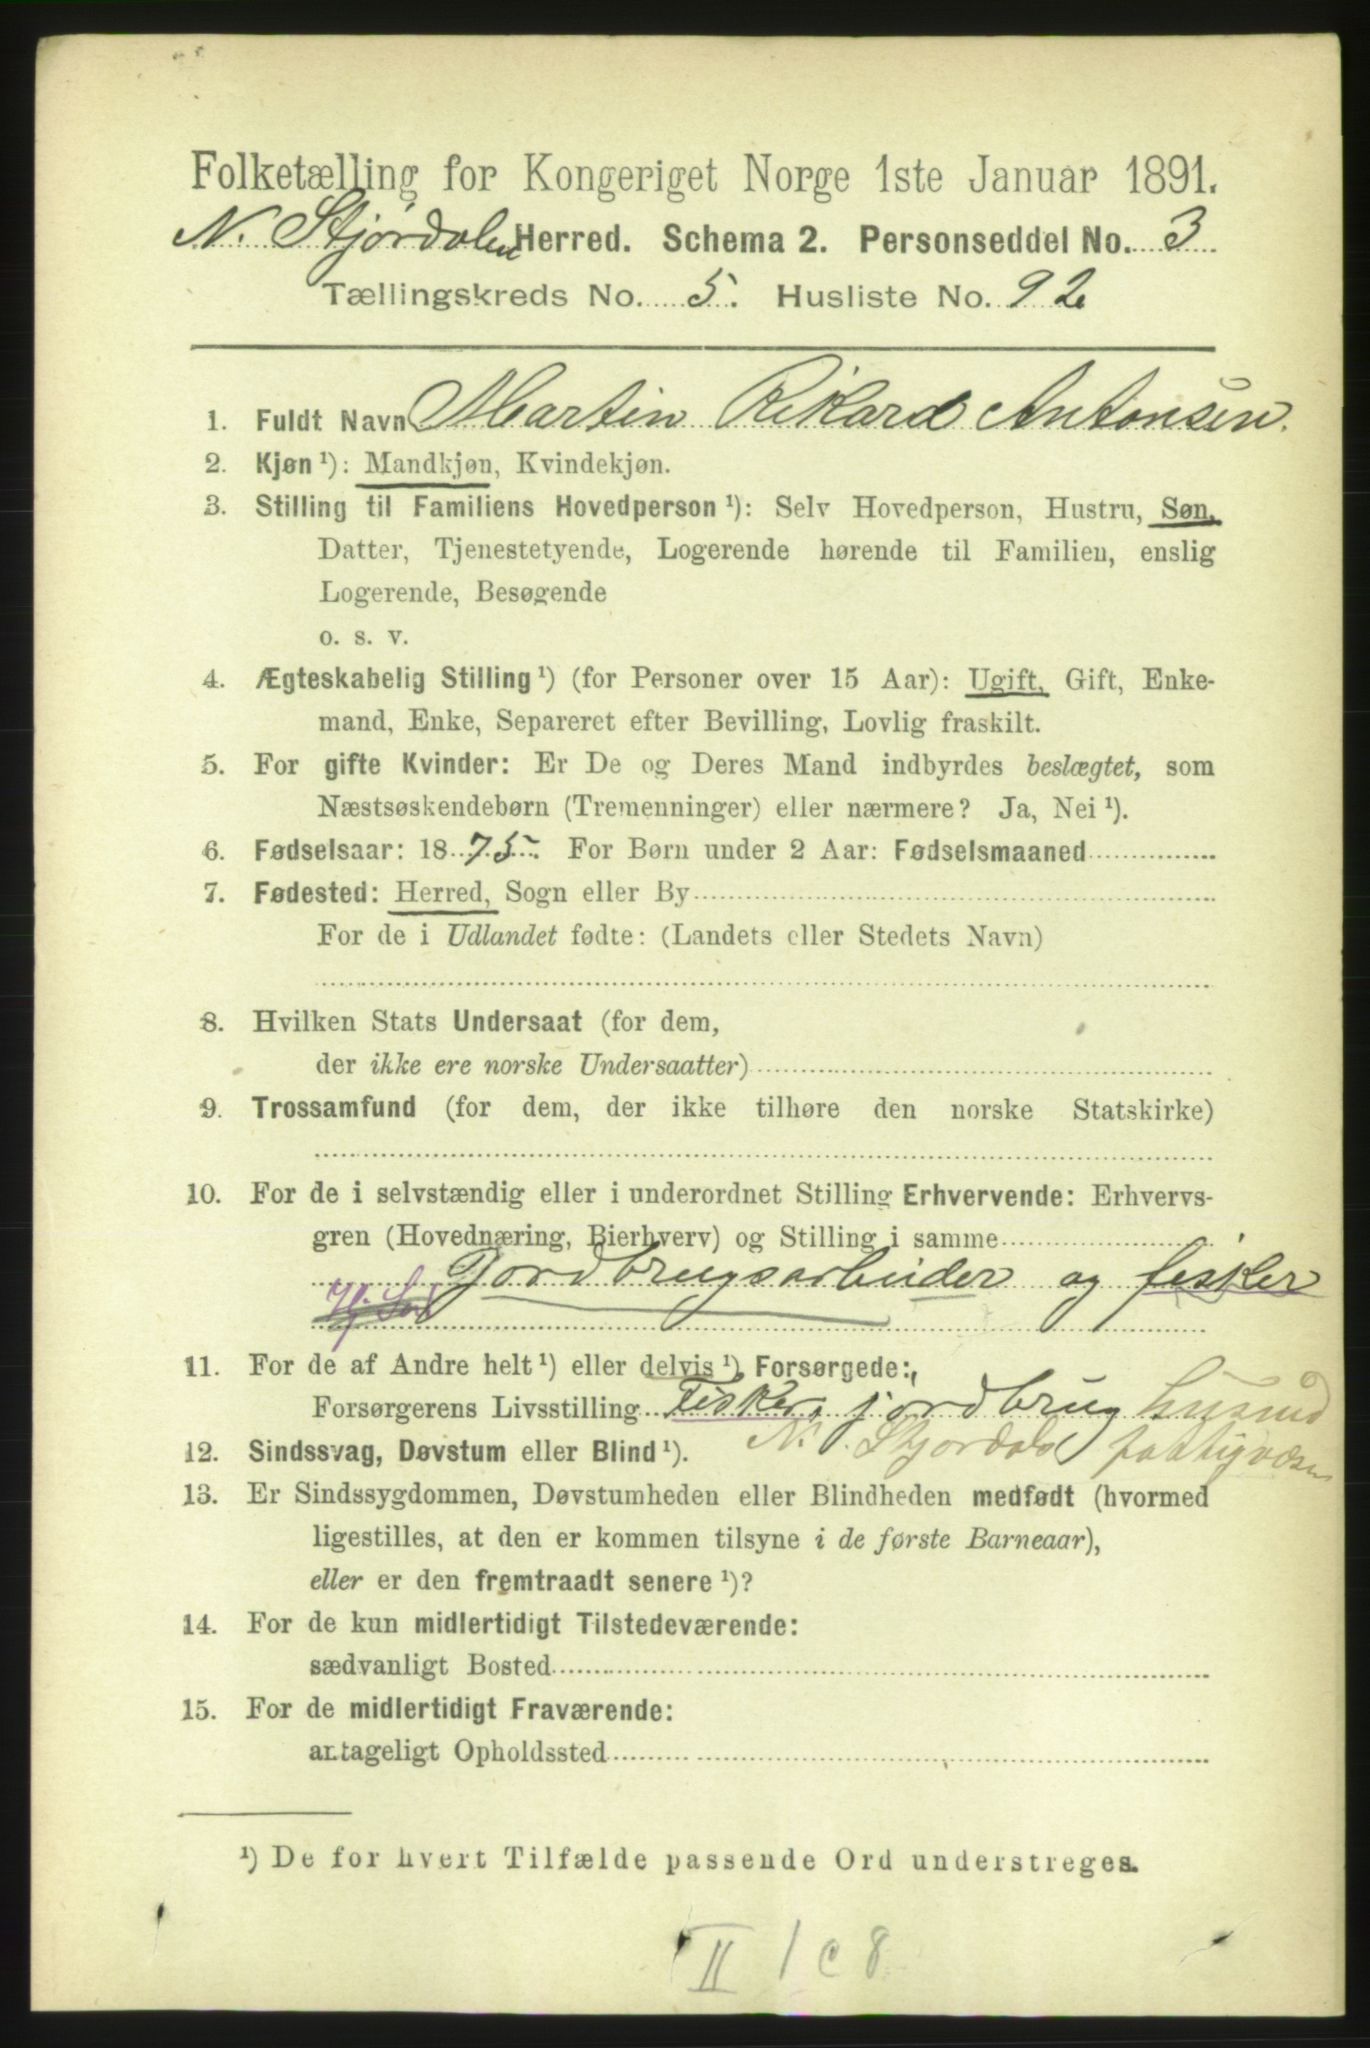 Folketælling for Kongeriget Norge 1ste Januar 1891.
N. Stjørdalen Herred. Schema 2. Personseddel No. 3
Tællingskreds No. 5. Husliste No. 92
1. Fuldt Navn Martin Rikard Antonsen.
2. Kjøn ¹): Mandkjøn, Kvindekjøn.
3. Stilling til Familiens Hovedperson ¹): Selv Hovedperson, Hustru, Søn,
Datter, Tjenestetyende, Logerende hørende til Familien, enslig
Logerende, Besøgende
o. s. v.
4. Ægteskabelig Stilling ¹) (for Personer over 15 Aar): Ugift, Gift, Enke-
mand, Enke, Separeret efter Bevilling, Lovlig fraskilt.
5. For gifte Kvinder: Er De og Deres Mand indbyrdes beslægtet, som
Næstsøskendebørn (Tremenninger) eller nærmere? Ja, Nei ¹).
6. Fødselsaar: 1875. For Børn under 2 Aar: Fødselsmaaned
7. Fødested: Herred, Sogn eller By
For de i Udlandet fødte: (Landets eller Stedets Navn)
8. Hvilken Stats Undersaat (for dem,
der ikke ere norske Undersaatter)
9. Trossamfund (for dem, der ikke tilhøre den norske Statskirke)
10. For de i selvstændig eller i underordnet Stilling Erhvervende: Erhvervs-
gren (Hovednæring, Bierhverv) og Stilling i samme
Gordbrugsarbeider og fisker
11. For de af Andre helt ¹) eller delvis ¹) Forsørgede:
Forsørgerens Livsstilling Fisker, jordbrug husmd
N. Stjordals fattigvæsen
12. Sindssvag, Døvstum eller Blind ¹).
13. Er Sindssygdommen, Døvstumheden eller Blindheden medfødt (hvormed
ligestilles, at den er kommen tilsyne i de første Barneaar),
eller er den fremtraadt senere ¹)?
14. For de kun midlertidigt Tilstedeværende:
sædvanligt Bosted
15. For de midlertidigt Fraværende:
antageligt Opholdssted
¹) De for hvert Tilfælde passende Ord understreges.
II 1 c 8